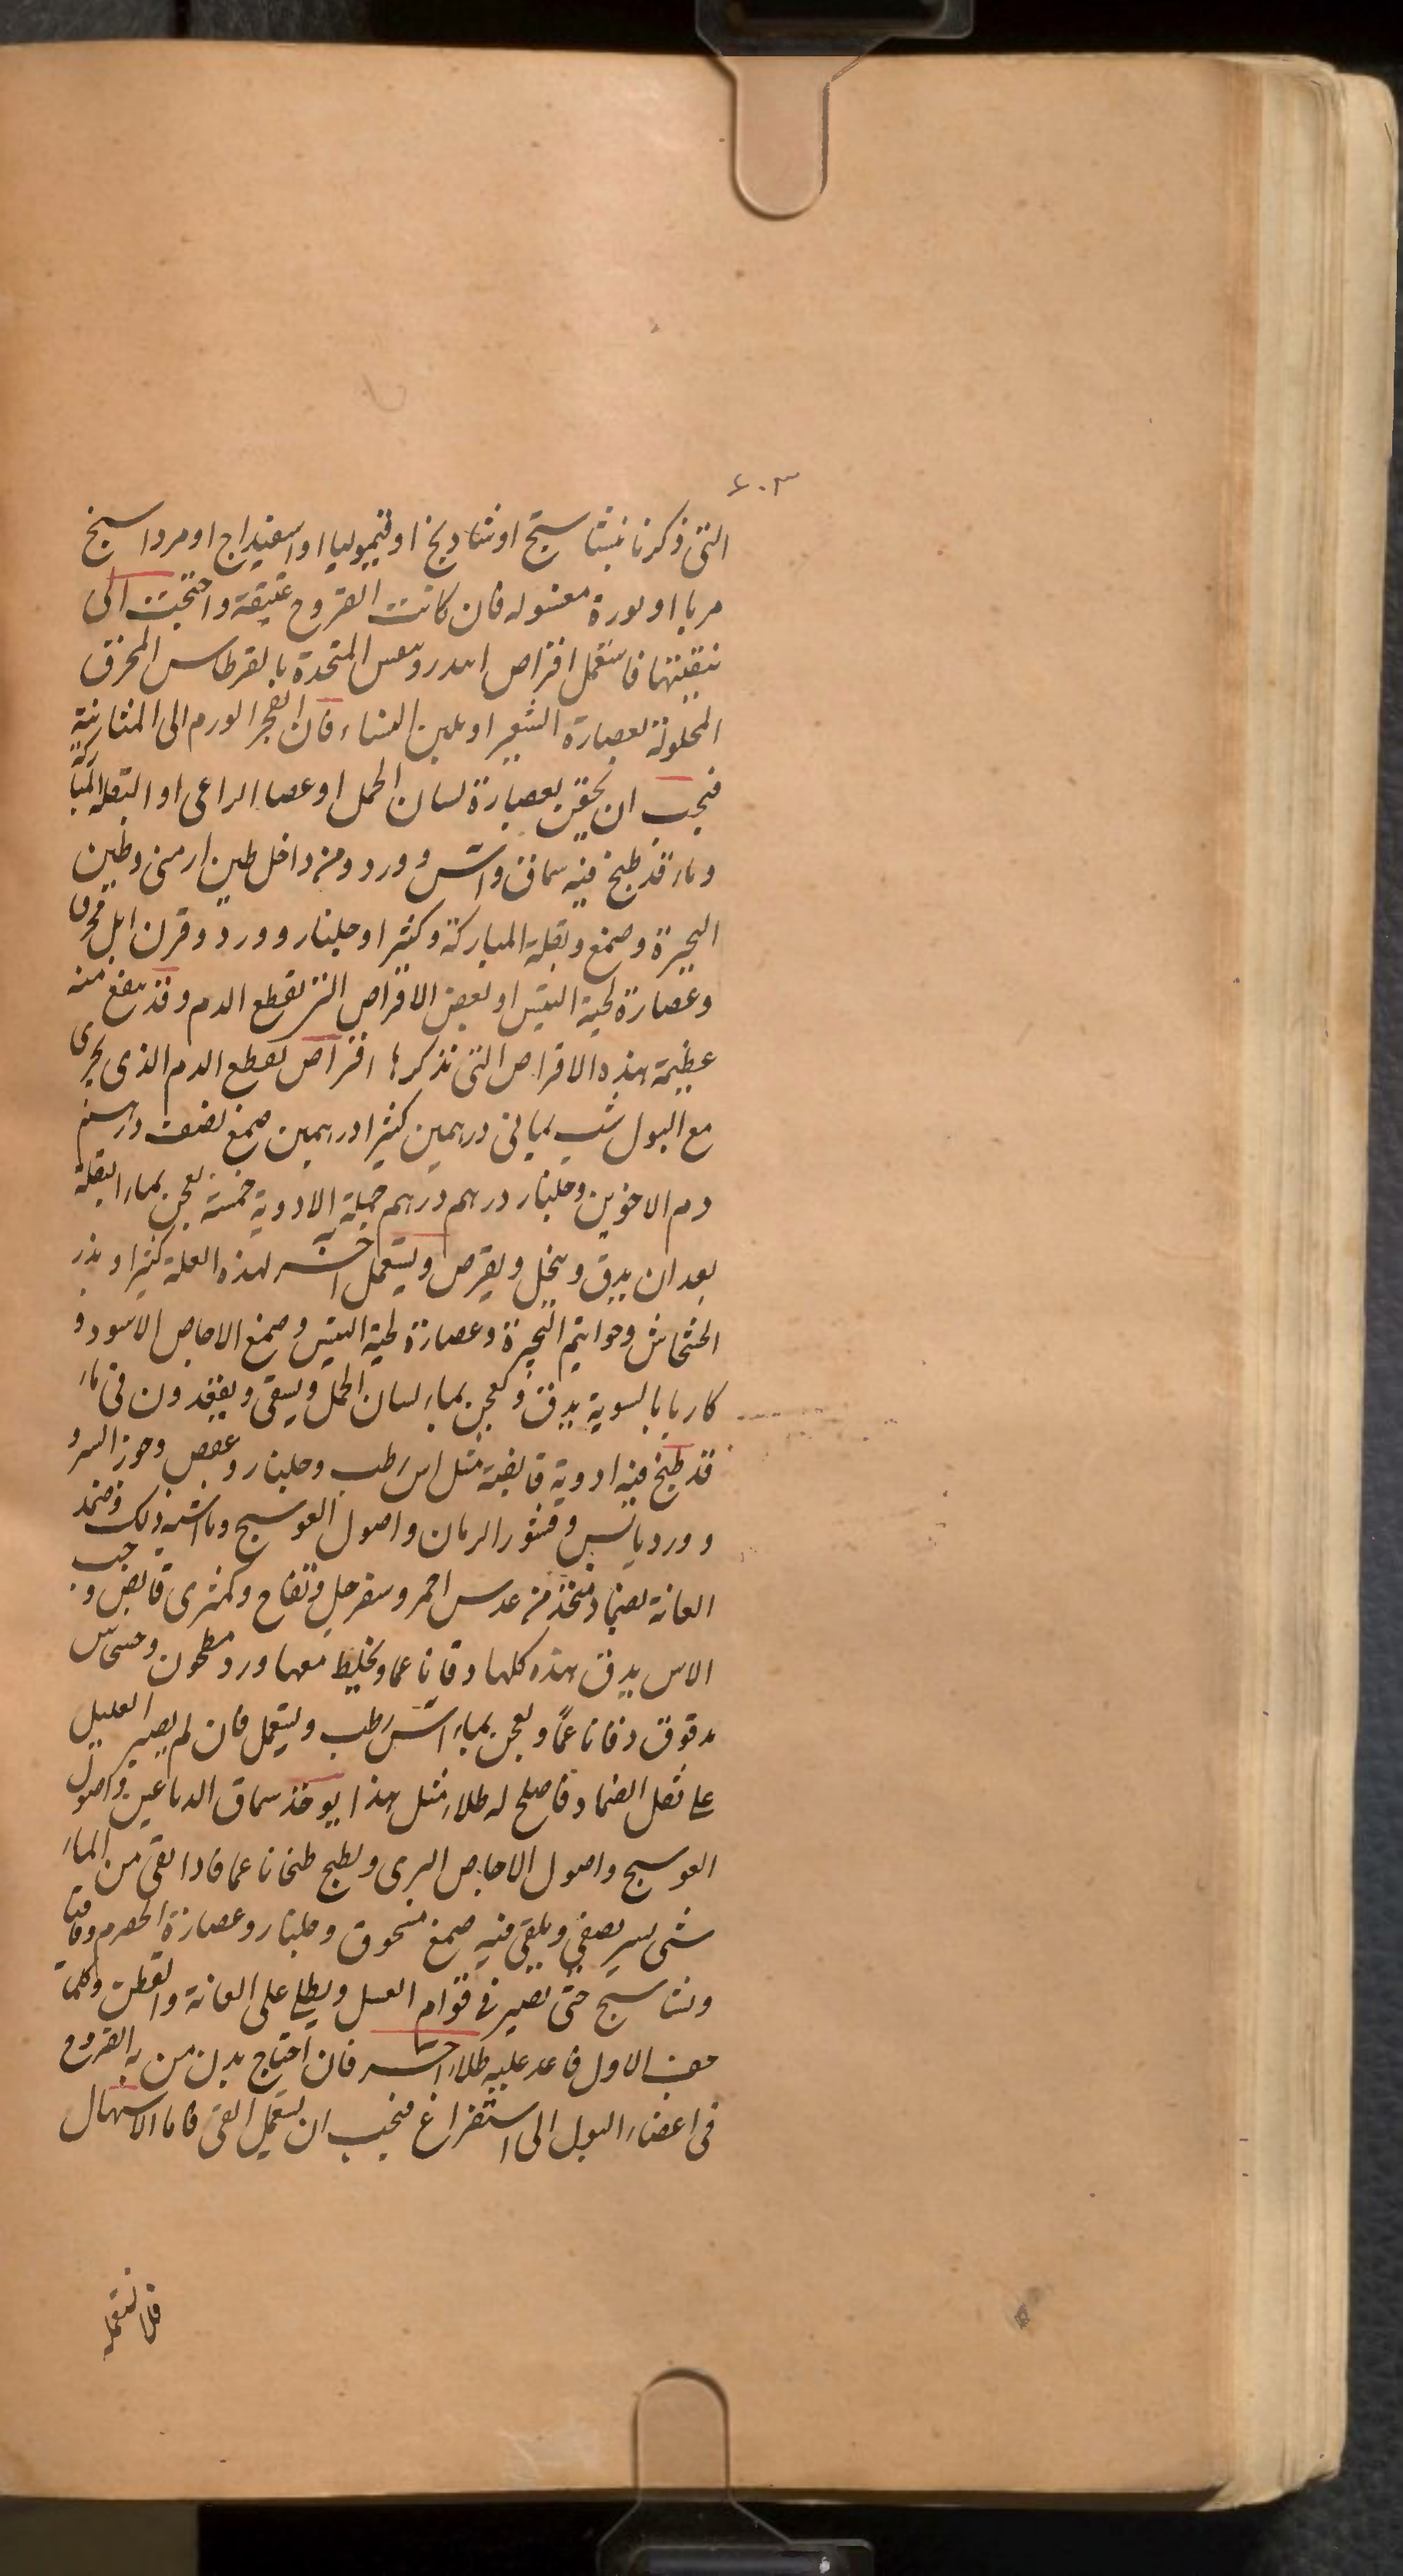 ٤٠٣
التى ذكرنا نبشاستج او شادنج او قيموليا او اسفيداج او مرداسنج
مربا او نورة مغسوله فان كانت القروح عتيقة واحتجت الى
تنقيتها فاستعمل اقراص اندروس المتخذة بالقرطاس المحرق
المحلولة بعصارة الشعير او بلبن النساء فان انفجر الورم الى المثانة
فيجب ان يحقن بعصارة لسان الحمل او عصا الراعى او البقلة المباركة
وماء قد طبخ فيه سماق واس وورد ومن داخل طين ارمنى وطين
البحيرة وصمغ وبقلة المباركة وكثيرا وجلنار وورد وقرن ايل محرق
وعصارة لحية التيس او بعض الاقراص التى تقطع الدم وقد ينفع منه
عظيمة هذه الاقراص التى نذكرها اقراص تقطع الدم الذى يجرى
مع البول شب يمانى درهمين كثيرا درهمين صمغ نصف درهم
دم الاخوين وجلنار درهم درهم جملة الادوية خمسة يعجن بماء البقلة
بعد ان يدق وينخل ويقرص ويستعمل آخر لهذه العلة كثيرا وبذر
الخشخاش وخواتيم البحيرة وعصارة لحية التيس وصمغ الاجاص الاسود و
كاربا بالسوية يدق ويعجن بماء لسان الحمل ويسقى ويقعدون فى ماء
قد طبخ فيه ادوية قابضة مثل اس رطب وجلنار وعفص وجوز السرو
وورد يابس وقشور الرمان واصول العوسج وما اشبه ذلك وضمد
العانة بضماد متخذ من عدس احمر وسفرجل وتفاح وكمثرى قابض وحب
الاس يدق هذه كلها دقا ناعما ويخلط معها ورد مطحون
مدقوق دقا ناعمًا ويعجن بماء آس رطب ويستعمل فان لم يصبر العليل
على ثقل الضماد فاصلح له طلاء مثل هذا يوخذ سماق الدباغين واصول
العوسج واصول الاجاص البرى ويطبخ طبخا ناعما فاذا بقى من الماء
شى يسير يصفى ويلقى فيه صمغ مسحوق وجلنار وعصارة الحصرم وقاقيا
ونشاستج حتى تصير فى قوام العسل ويطلى على العانة والقطن وكلما
جف الاول فاعد عليه طلاء اخر فان احتاج بدن من به القروح
فى اعضاء البول الى استفراغ فيجب ان يستعمل القى فاما الاسهال
فلا تستعمله